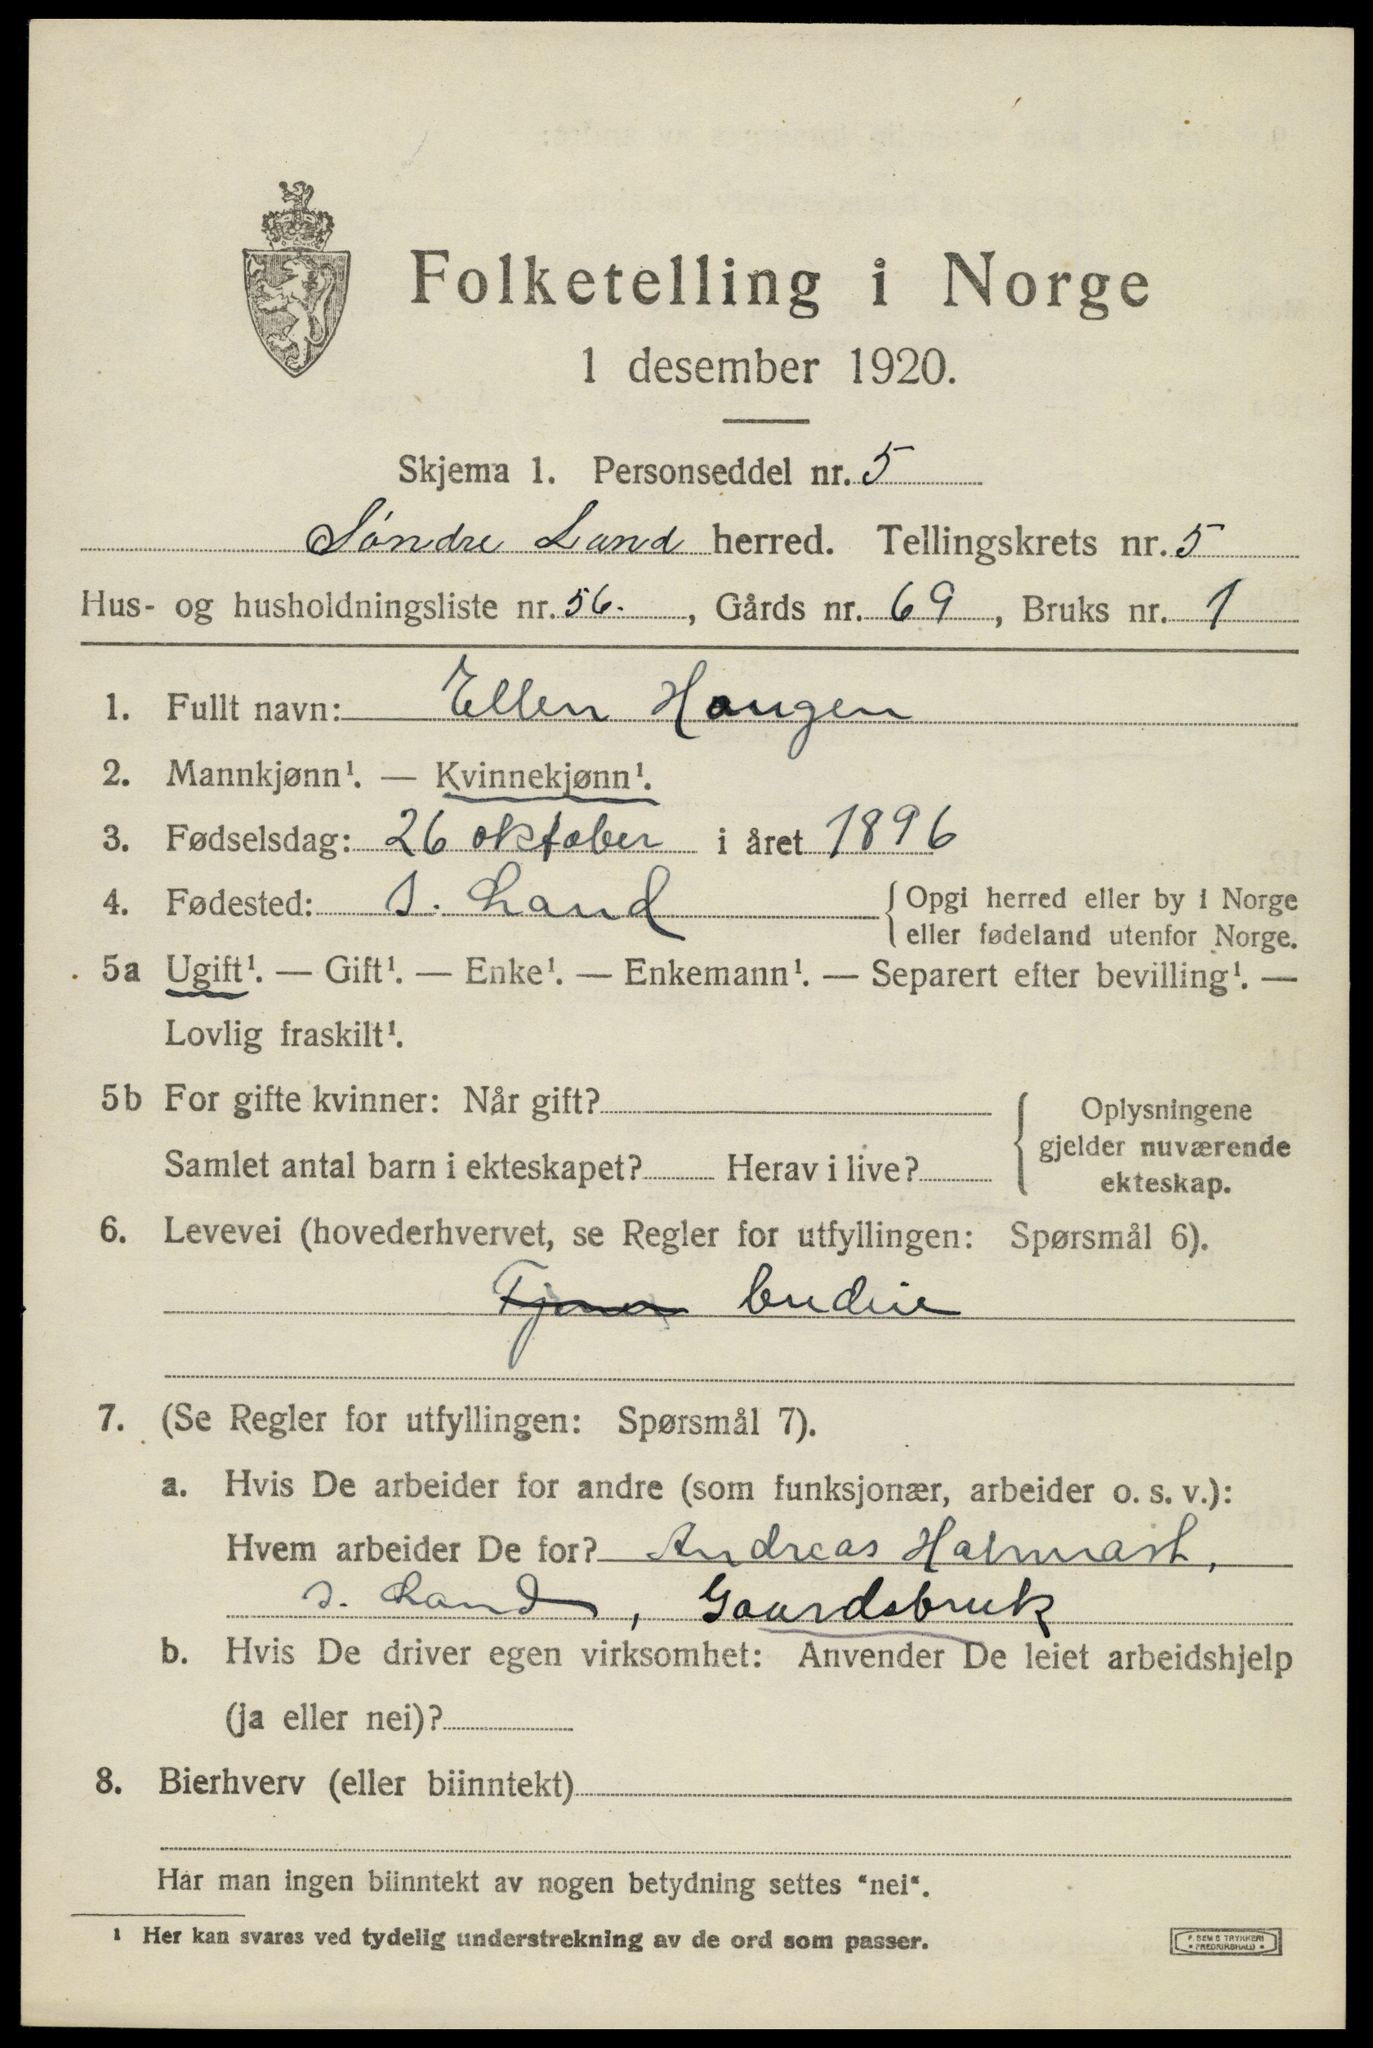 Folketelling i Norge
1 desember 1920.
Skjema 1. Personseddel nr. 5
Søndre Land herred. Tellingskrets nr. 5
Hus- og husholdningsliste nr. 56. , Gårds nr. 69 , Bruks nr. 1
1. Fullt navn: Ellen Haugen
2. Mannkjønn¹. — Kvinnekjønn¹.
3. Fødselsdag: 26 oktober i året 1896
4. Fødested: S. Land { Opgi herred eller by i Norge
eller fødeland utenfor Norge.
5a Ugift¹. — Gift¹. — Enke¹. — Enkemann¹. — Separert efter bevilling¹. —
Lovlig fraskilt¹.
5b For gifte kvinner: Når gift?
Samlet antal barn i ekteskapet? Herav i live?
{ Oplysningene
gjelder nuværende
ekteskap.
6. Levevei (hovederhvervet, se Regler for utfyllingen: Spørsmål 6).
budeie
7. (Se Regler for utfyllingen: Spørsmål 7).
a. Hvis De arbeider for andre (som funksjonær, arbeider o. s. v.):
Hvem arbeider De for? Andreas
S. Land, Gaardsbruk
b. Hvis De driver egen virksomhet: Anvender De leiet arbeidshjelp
(ja eller nei)?
8. Bierhverv (eller biinntekt)
Har man ingen biinntekt av nogen betydning settes "nei".
¹ Her kan svares ved tydelig understrekning av de ord som passer.
F. SEM'S TRYKKERI
FREDRIKSHALD